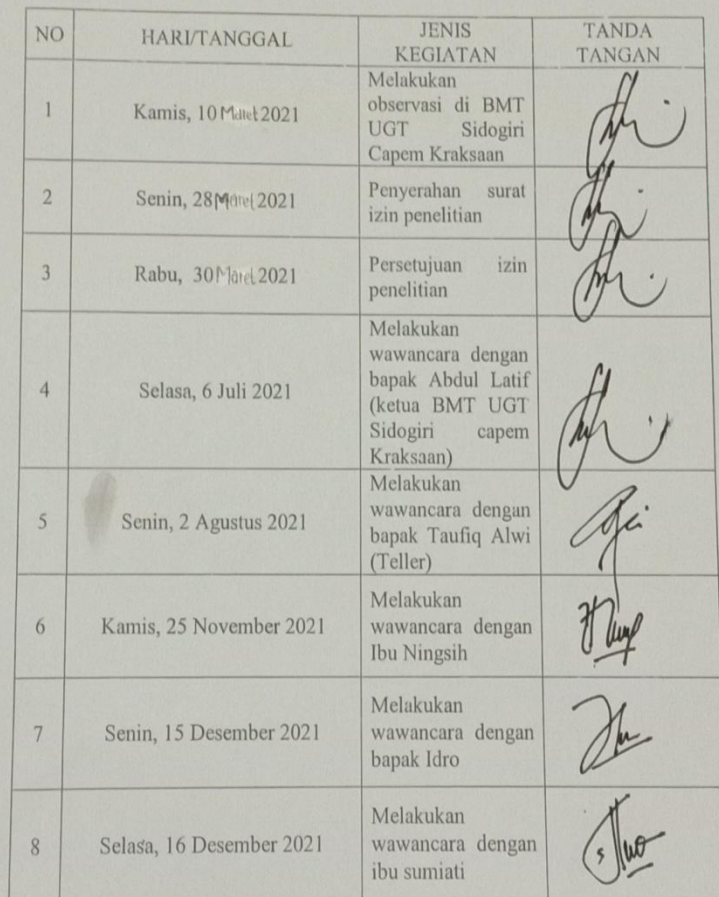 NO HARI/TANGGAL JENIS KEGIATAN TANDA TANGAN
1 Kamis, 10 Maret 2021 Melakukan
observasi di BMT
UGT Sidogiri
Capem Kraksaan
2 Senin, 28 Maret 2021 Penyerahan surat
izin penelitian
3 Rabu, 30 Maret 2021 Persetujuan izin
penelitian
4 Selasa, 6 Juli 2021 Melakukan
wawancara dengan
bapak Abdul Latif
(ketua BMT UGT
Sidogiri capem
Kraksaan)
5 Senin, 2 Agustus 2021 Melakukan
wawancara dengan
bapak Taufiq Alwi
(Teller)
6 Kamis, 25 November 2021 Melakukan
wawancara dengan
Ibu Ningsih
7 Senin, 15 Desember 2021 Melakukan
wawancara dengan
bapak Idro
8 Selasa, 16 Desember 2021 Melakukan
wawancara dengan
ibu sumiati